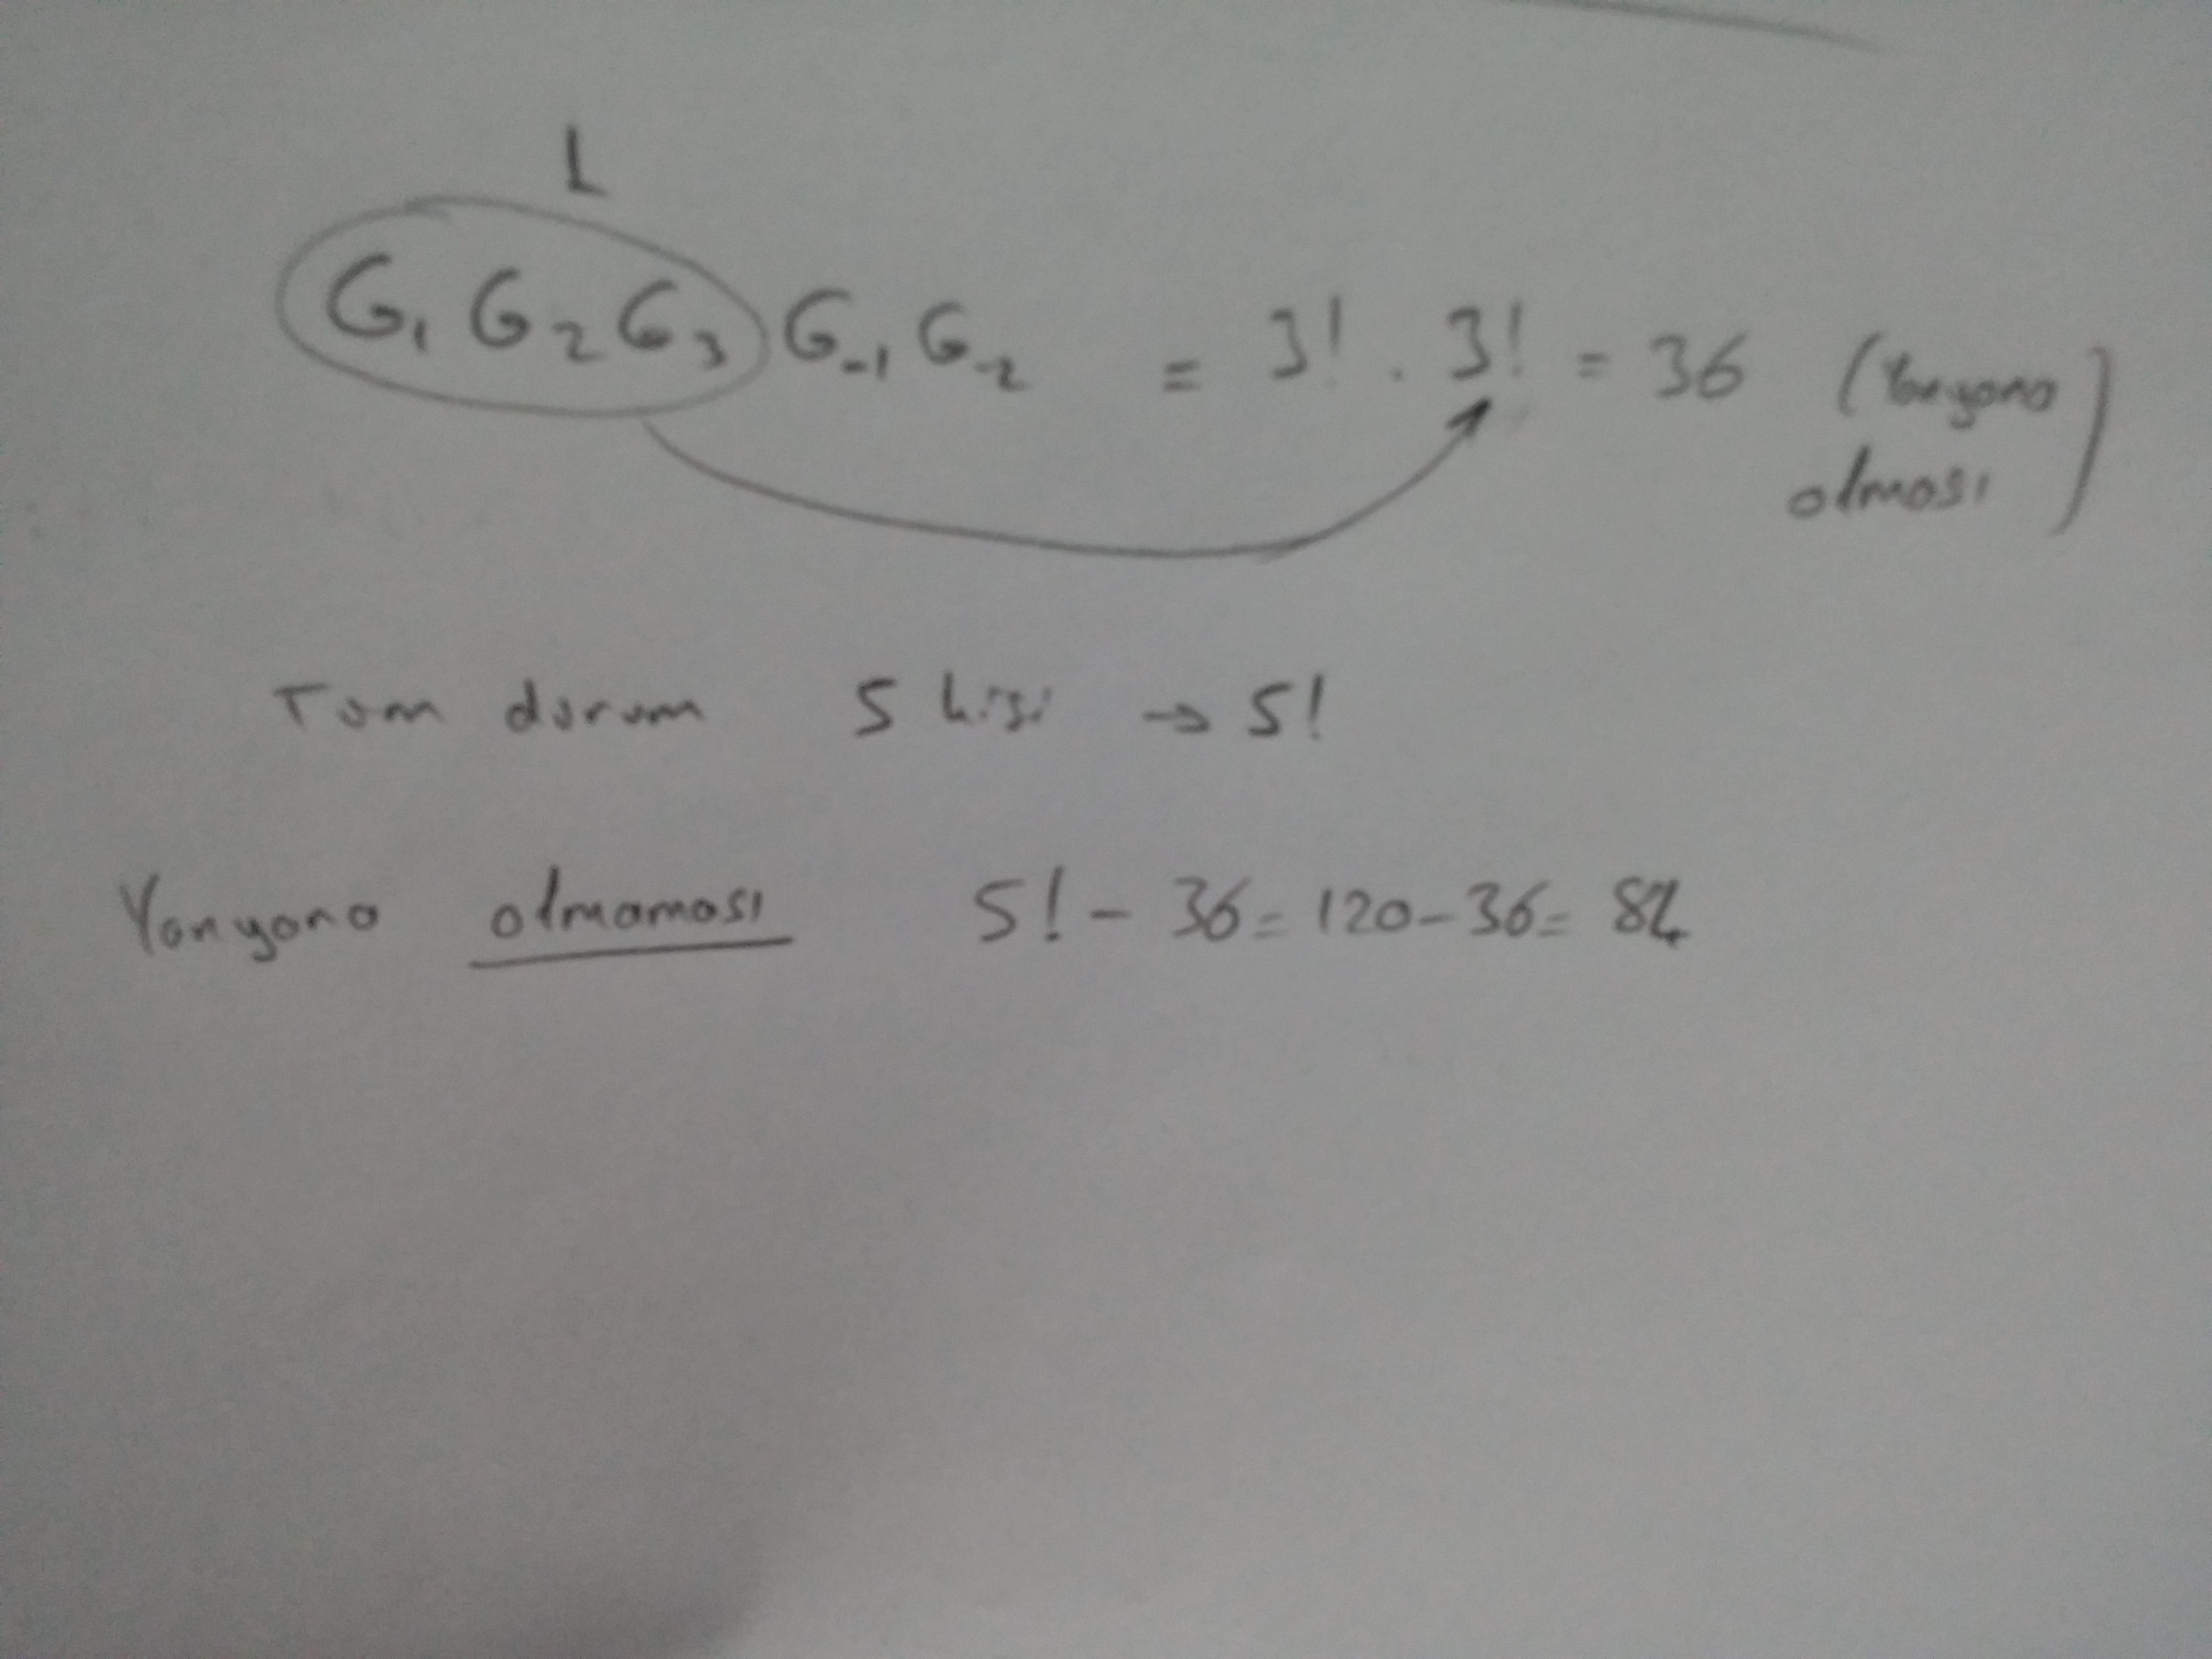 1
G₁ G₂ G₃ G₋₁ G₋₂ = 3! . 3! = 36 (Yanyana
olması)
Tum durum 5 kişi → 5!
Yanyana olmaması 5! - 36 = 120 - 36 = 84